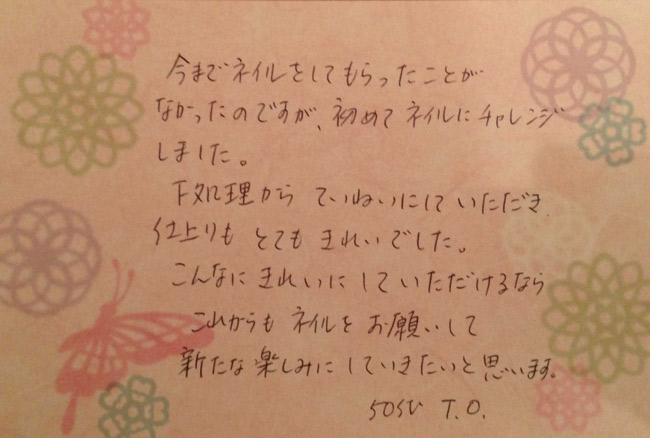 今までネイルをしてもらったことが
なかったのですが、初めてネイルにチャレンジ
しました。
下処理から ていねいにして いただき
仕上りも とても きれいでした。
こんなに きれいに して いただけるなら
これからも ネイルを お願いして
新たな 楽しみに していきたいと 思います。
50代 T.O.